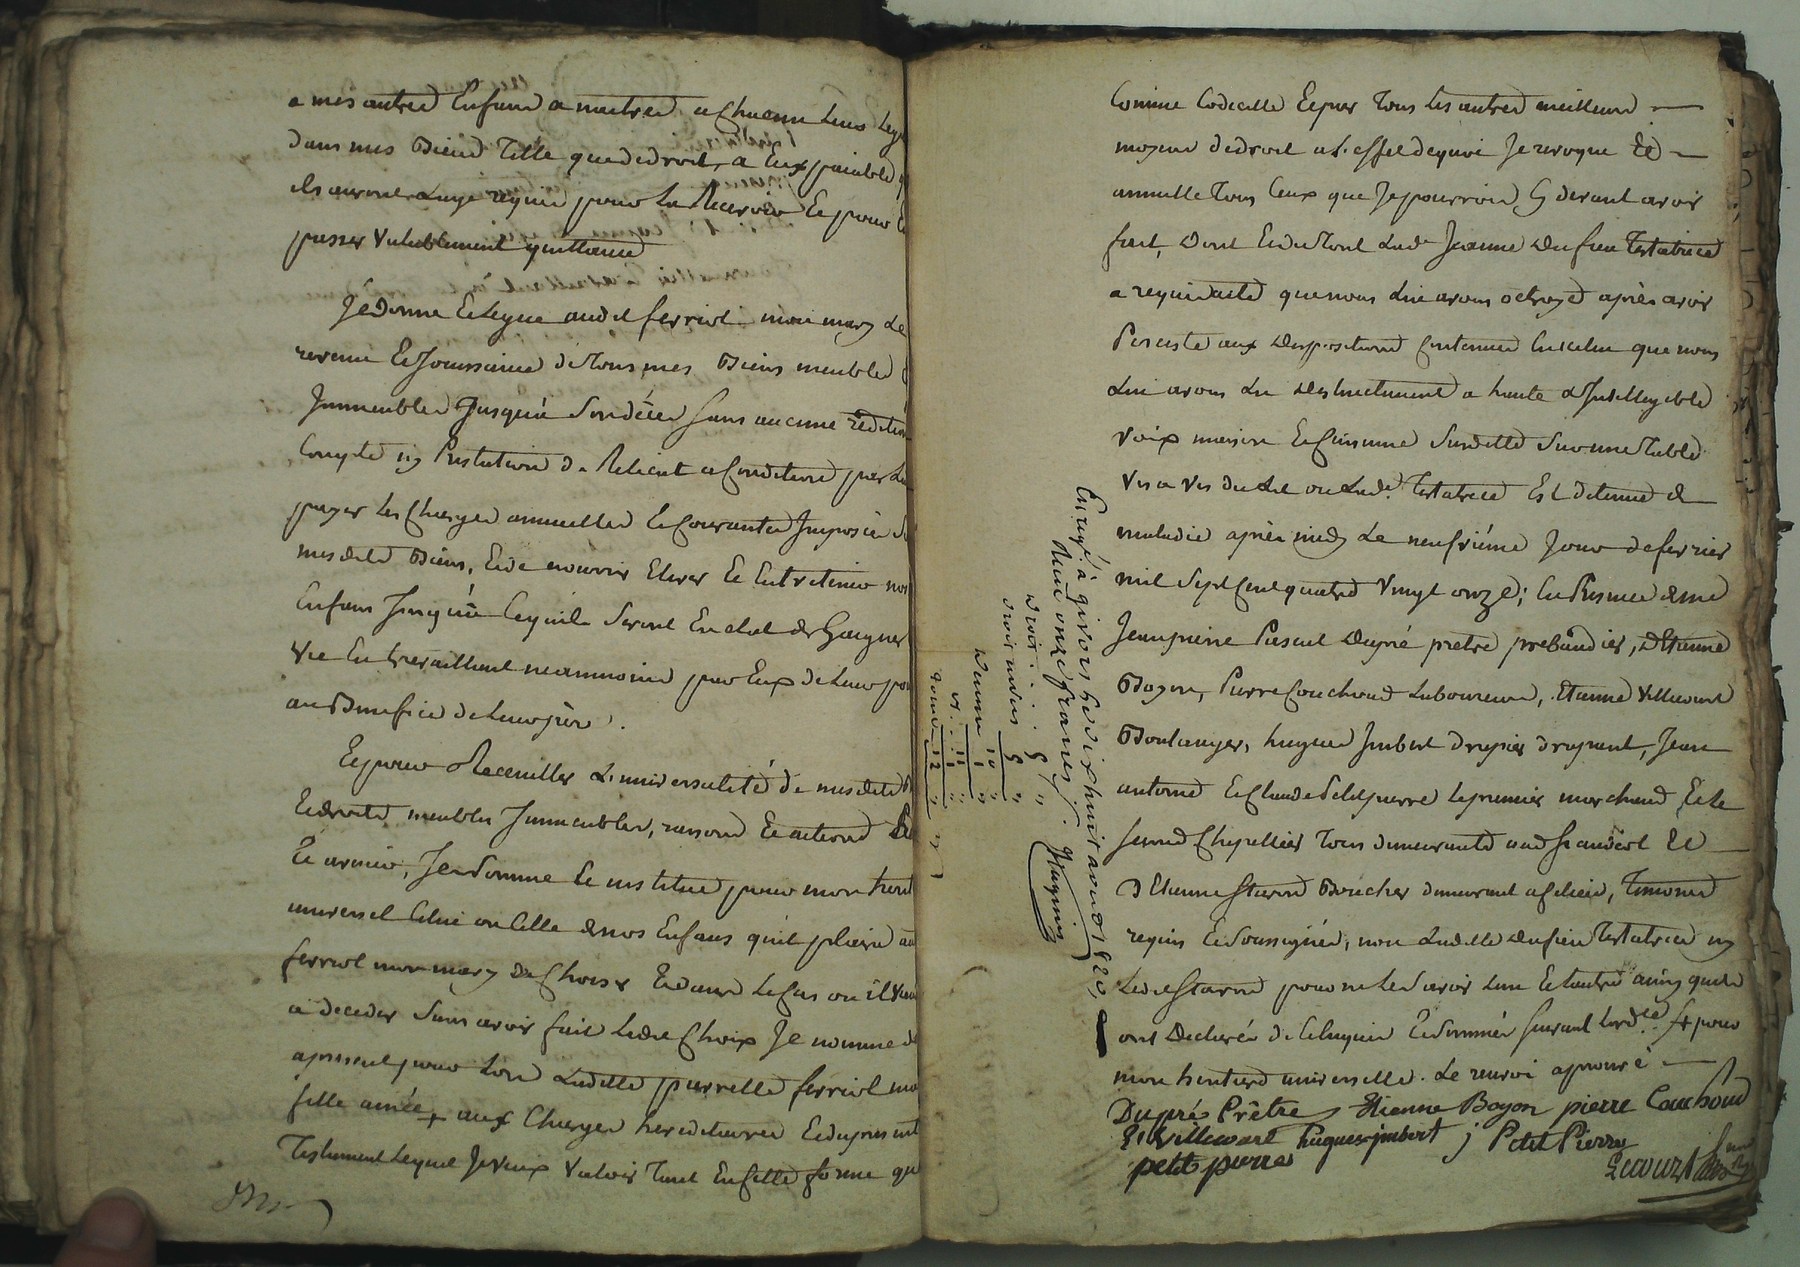 a mes autres Enfans a naitre a chacun leur leg
dans mes Biens Telle que de droit, a Eux paiable q
ils auront L'age requis pour la Recevoir Et pour E
passer valablement quittance
Je Donne Et Legue aud.t ferriol mon mary Le
revenu Et Jouissance de Tous mes Biens meubles
Immeubles Jusqu'à Son décès sans aucune reddition
Compte ny Prestation de Relicat a Condition par lu
payer les Charges annuelles Et Courantes Imposées S
mesdits Biens, Et de nourrir Elever Et Entretenir nos
Enfans Jusqu'à Ce qu'ils Seront En etat de Gaigner
vie En travaillant neanmoins par Eux de Leur po
au Benefice de Leur père.
Et pour Recueillir L'universalité de mesdits B
Et droits meubles Immeubles, raisons Et actions
Et avenir, Je nomme Et institue pour mon herit
universel Celui ou Celle de nos Enfans qu'il plaira au
ferriol mon mary De Choisir Et dans Le Cas ou il vien
a deceder Sans avoir fait Ledit Choix Je nomme de
apresent pour Lors Ladite pierrette ferriol ma
fille ainée + aux Charges hereditaires Et du present
Testament Lequel Je Veux Valoir Tant En cette forme que
Comme Codicille Et par Tous les autres meilleurs
moyens de droit a L'effet de quoi Je revoque Et
annulle Tous Ceux que Je pourrois Cy devant avoir
fait, Dont Et du Tout Lad.e Jeanne Dufieu Testatrice
a requis acte que nous Lui avons octroyé après avoir
Persisté aux Dispositions Contenues En icelui que nous
Lui avons Lu Distinctement a haute & Intelligible
voix maison Et Cuisine Susdite Sur une Table
vis a vis du Lit ou Lad.e Testatrice Est detenue de
maladie après midy Le neufvième Jour de fevrier
mil Sept Cent quatre Vingt onze; En Presence de me
Jean pierre Pascal Dupré pretre prebandier, D'Etienne
Boyon, Pierre Couchoud Laboureurs, Etienne Villecourt
Boulanger, hugues Imbert drapier drapant, Jean
antoine Et Claude Petitpierre le premier marchand Et Le
second Chapellier Tous demeurants aud St andéol Et
D'Etienne Staron Boucher demeurant a Chein, Temoins
requis Et Soussignés, non Ladite Dufieu Testatrice ny
Ledit Staron pour ne Le Savoir L'un Et L'autre ainsy qu'ils
ont Declaré de Ce Enquis Et Sommés suivant L'ord.ce + pour
mon heritiere universelle. Le renvoi aprouvé
Dupré Prêtre Etienne Boyon pierre Couchoud
Et Villecourt hugues jmbert j Petit Pierre
petit pierre
Enregé à givors le dix huit aout 1820,
Reçu onze francs.